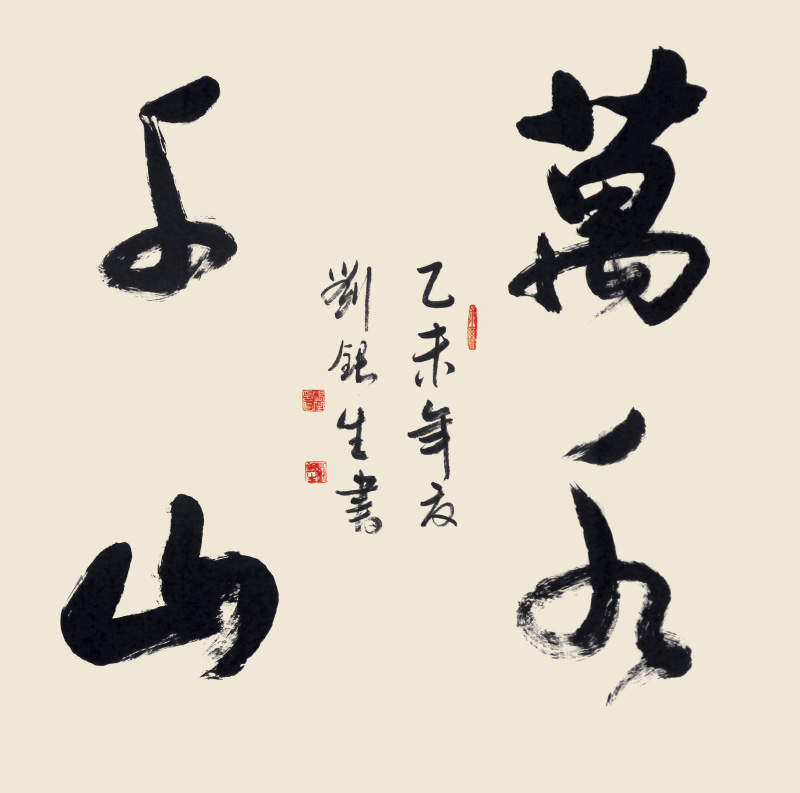 萬水
千山
乙未年夏
劉銀生書